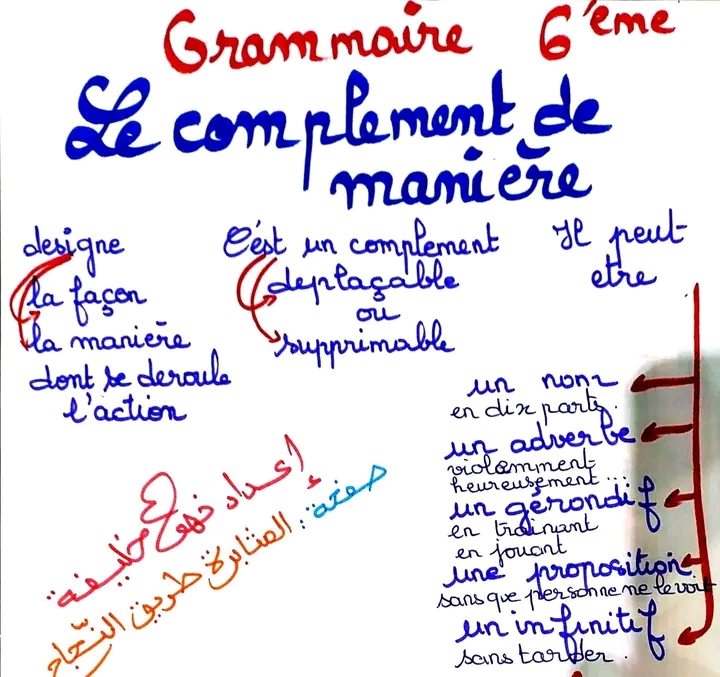 Grammaire 6ème
Le complement de
manière
designe
la façon
la manière
dont se deroule
l'action
C'est un complement
deplaçable
ou
supprimable
Il peut
etre
un nom
en dix parts.
un adverbe
violemment
heureusement...
un gérondif
en trainant
en jouant
une proposition
sans que personne ne le voit
un infinitif
sans tarder.
إعداد نهى خليفة:
صفحة: المثابرة طريق النجاح